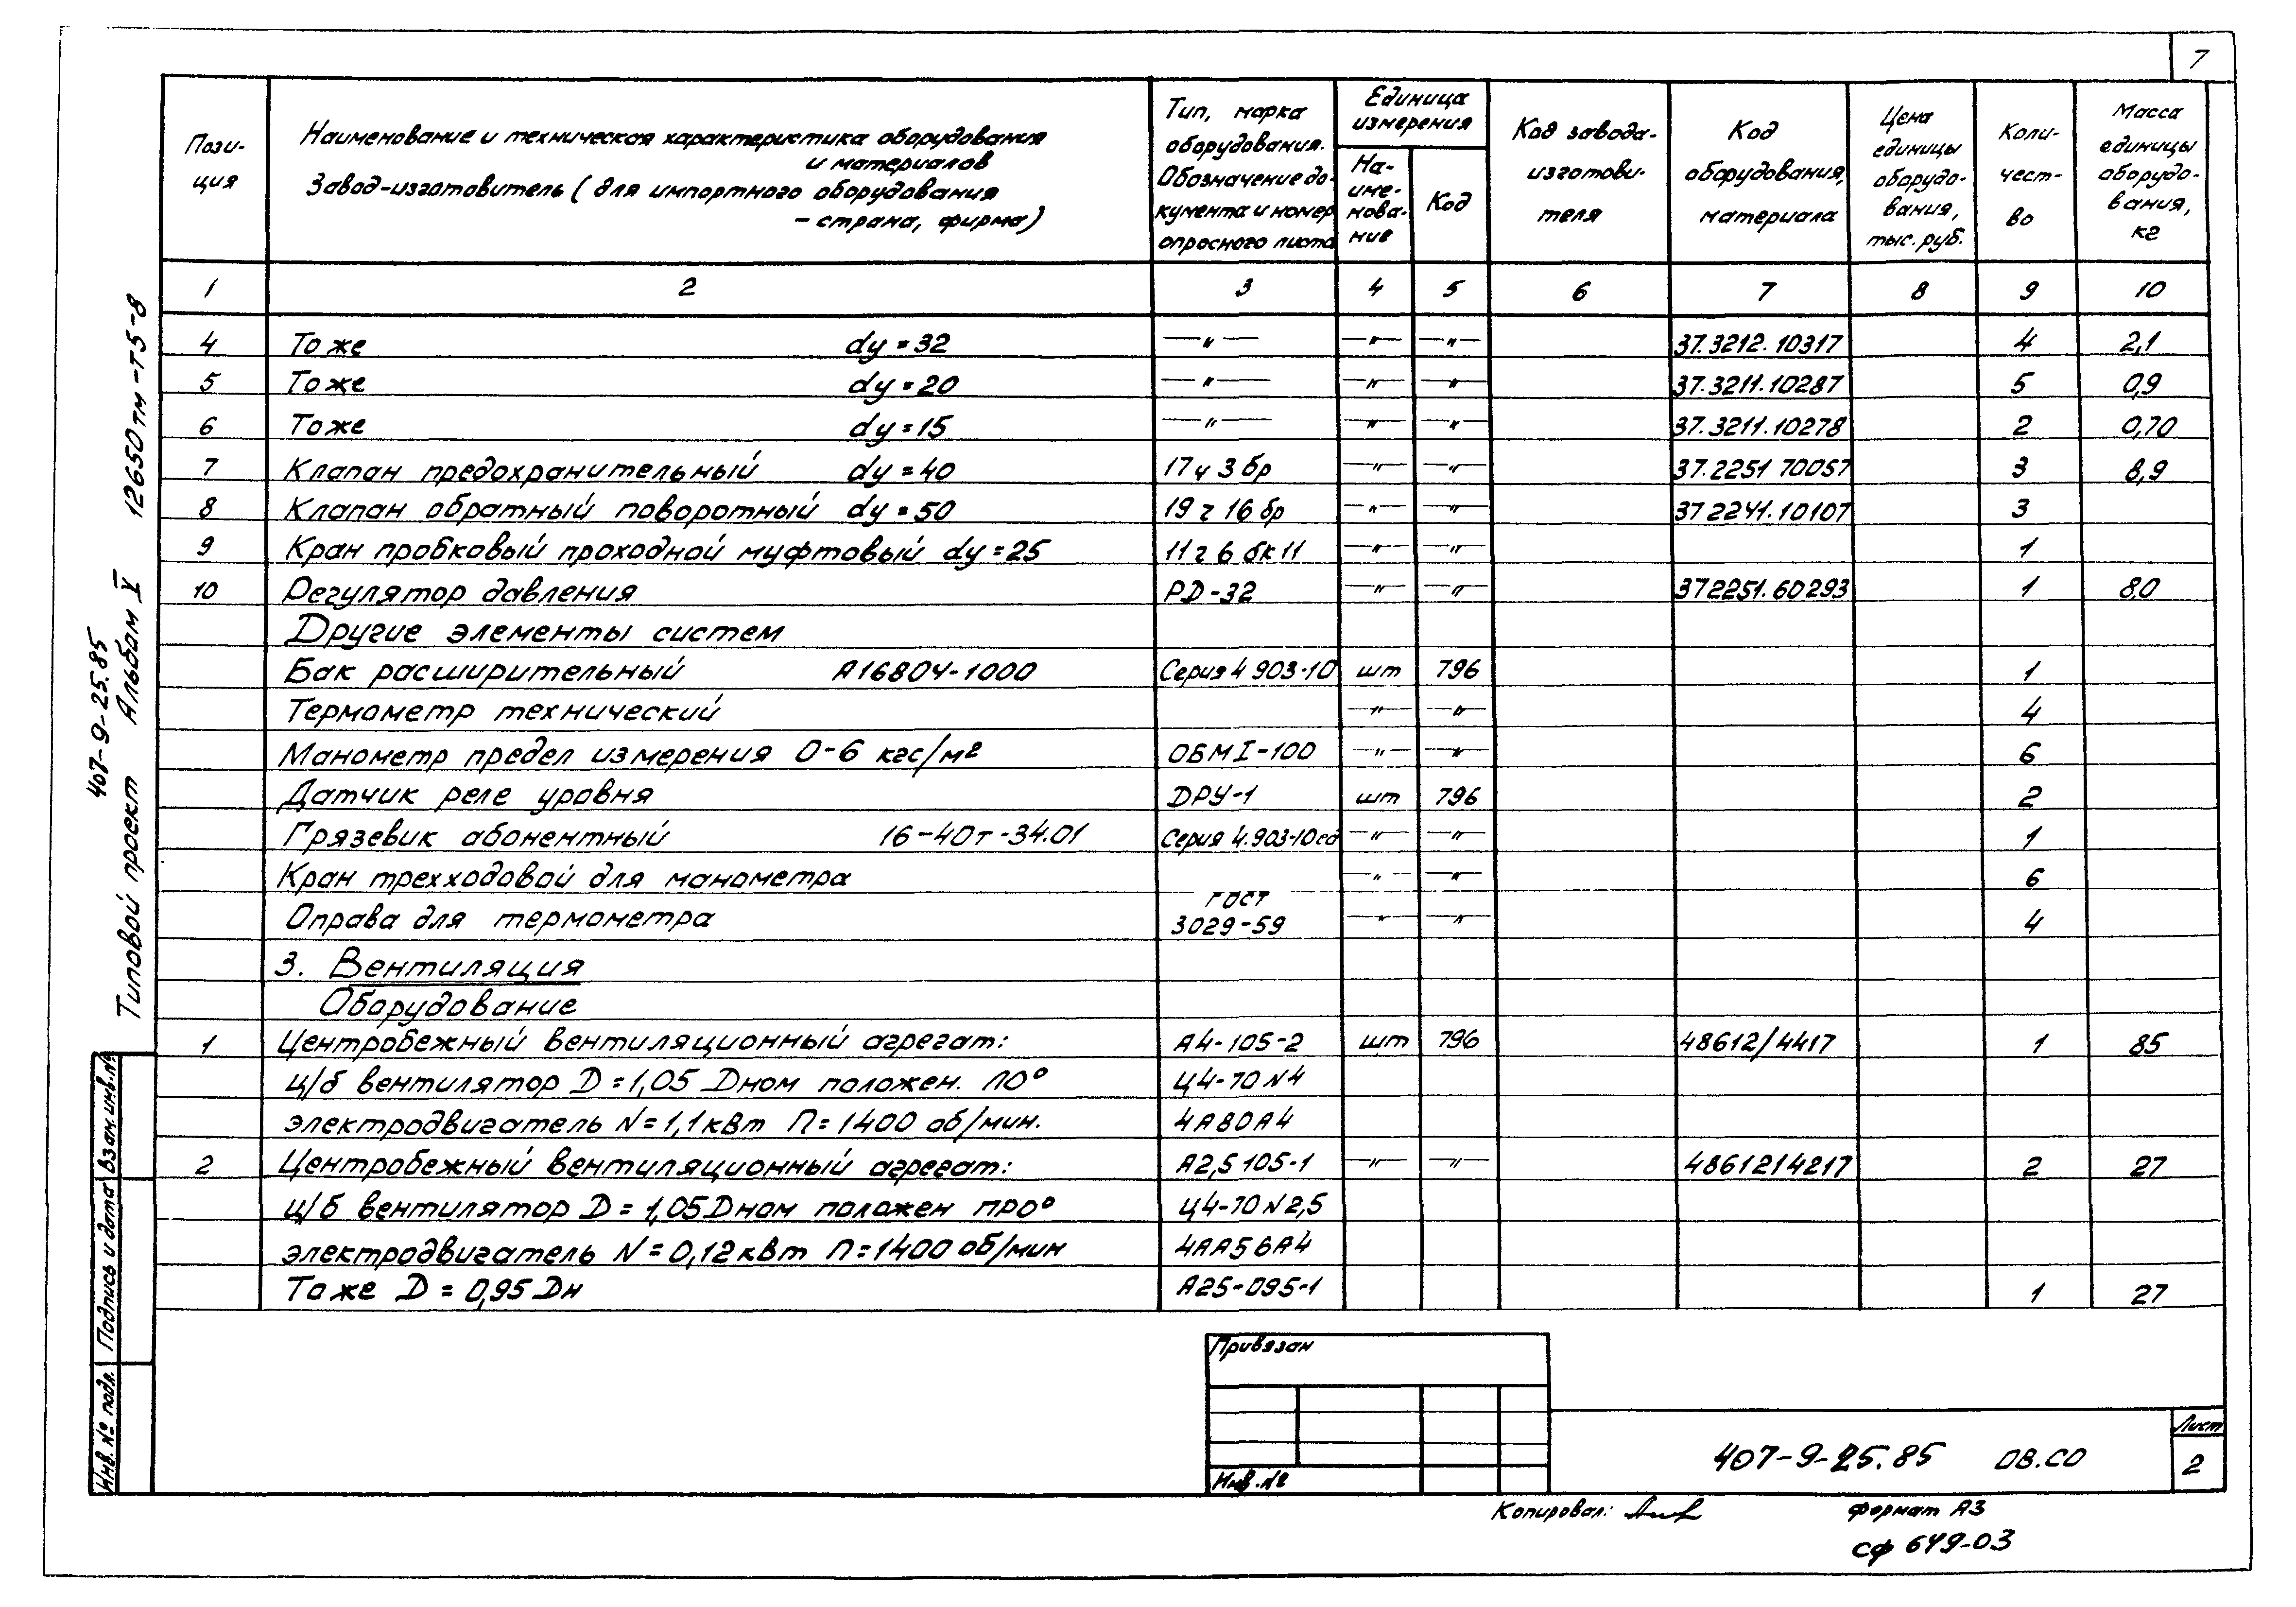 7
Пози-
ция
Наименование и техническая характеристика оборудования
и материалов
Завод-изготовитель (для импортного оборудования
– страна, фирма)
Тип, марка
оборудования.
Обозначение до-
кумента и номер
опросного листа
Единица
измерения
На-
име-
нова-
ние
Код
Код завода-
изготови-
теля
Код
оборудования,
материала
Цена
единицы
оборудо-
вания,
тыс. руб.
Коли-
чест-
во
Масса
единицы
оборудо-
вания,
кг
1 2 3 4 5 6 7 8 9 10
4 То же dу = 32 —〃— —〃— —〃— 37.3212.10317 4 2,1
5 То же dу = 20 —〃— —〃— —〃— 37.3211.10287 5 0,9
6 То же dу = 15 —〃— —〃— —〃— 37.3211.10278 2 0,70
7 Клапан предохранительный dу = 40 17ч3бр —〃— —〃— 37.2251 70057 3 8,9
8 Клапан обратный поворотный dу = 50 19ч16бр —〃— —〃— 37 2241.10107 3
9 Кран пробковый проходной муфтовый dу = 25 11ч6бк11 —〃— —〃— 1
10 Регулятор давления РД-32 —〃— —〃— 372251.60293 1 8,0
Другие элементы систем
Бак расширительный А16804-1000 Серия 4 903-10 шт 796 1
Термометр технический —〃— —〃— 4
Манометр предел измерения 0-6 кгс/м2 ОБМ I-100 —〃— —〃— 6
Датчик реле уровня ДРУ-1 шт 796 2
Грязевик абонентный 16-40т-34.01 Серия 4.903-10 —〃— —〃— 1
Кран трехходовой для манометра —〃— —〃— 6
Оправа для термометра ГОСТ 3029-59 —〃— —〃— 4
3. Вентиляция
Оборудование
1 Центробежный вентиляционный агрегат: А4-105-2 шт 796 48612/4417 1 85
ц/б вентилятор D = 1,05 Dном положен. Л0° Ц4-70 N4
электродвигатель N = 1,1 квт n = 1400 об/мин. 4А80А4
2 Центробежный вентиляционный агрегат: А2,5 105-1 —〃— —〃— 4861214217 2 27
ц/б вентилятор D = 1,05 Dном положен ПР0° Ц4-70 N2,5
электродвигатель N = 0,12 квт n = 1400 об/мин 4АА56А4
То же D = 0,95 Dн А25-095-1 1 27
407-9-25.85
Типовой проект Альбом V 12650тм-т5-8
Инв. № подл. Подпись и дата Взам. инв. №
Привязан
Инв. №
407-9-25.85 ОВ.СО
Лист
2
Копировал:
Формат А3
сф 649-03